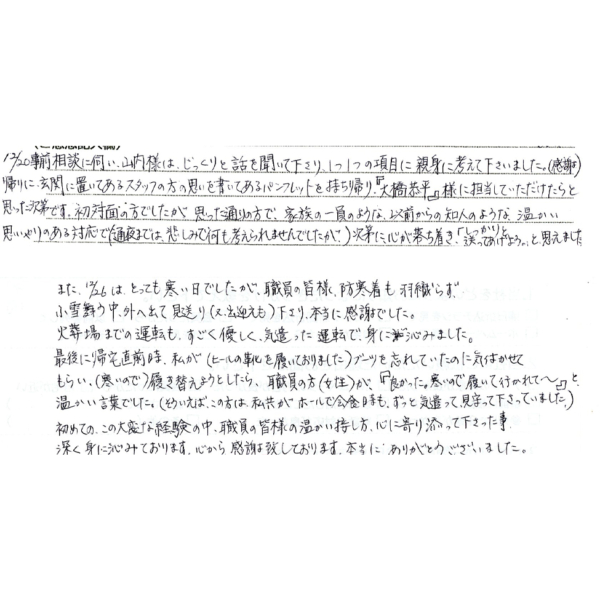 (ご感想記入欄)
12/20事前相談に伺い、山内様は、じっくりと話を聞いて下さり、1つ1つの項目に親身に考えて下さいました。(感謝)
帰りに、玄関に置いてあるスタッフの方の思いを書いてあるパンフレットを持ち帰り、『大橋恭平』様に担当していただけたらと
思った次第です。初対面の方でしたが、思った通りの方で、家族の一員のような、以前からの知人のような、温かい
思いやりのある対応で(通夜までは、悲しみで何も考えられませんでしたが)次第に心が落ち着き、「しっかりと、送ってあげよう。」と思えました
また、12/26は、とっても寒い日でしたが、職員の皆様、防寒着も羽織らず
小雪舞う中、外へ出て見送り(又、出迎えも)下さり、本当に感謝でした。
火葬場までの運転も、すごく優しく、気遣った運転で、身に沁みました。
最後に帰宅直前時、私が(ヒールの靴を履いておりました)ブーツを忘れていたのに気付かせて
もらい、(寒いので)履き替えようとしたら、職員の方(女性)が、『良かった。寒いので履いて行かれて〜』と、
温かい言葉でした。(そういえば、この方は、私共がホールで会食時も、ずっと気遣って、見守って下さっていました。)
初めての、この大変な経験の中、職員の皆様の温かい持し方、心に寄り添って下さった事
深く身に沁みております。心から感謝致しております。本当にありがとうございました。